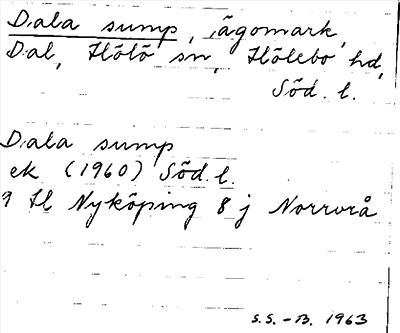 Dala sump, ägomark,
Dal, Hölö sn, Hölebo hd,
Söd. l.
Dala sump
ek (1960) Söd. l.
9 H Nyköping 8 j Norrvrå
S.S. - B. 1963